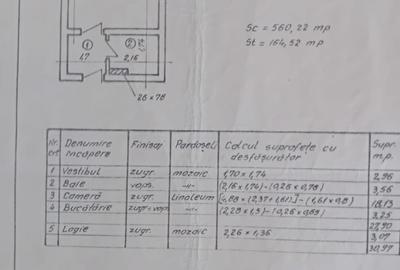 1
2
1,7
2,16
26 x 78
Sc = 560,22 mp
St = 164,52 mp
Nr. crt. Denumire încăpere Finisaj Pardoseli Calcul suprafețe cu desfășurător Supr. m.p.
1 Vestibul zugr. mozaic 1,70 x 1,74 2,96
2 Baie vops. -"- (2,16 x 1,74) - (0,26 x 0,78) 3,56
3 Cameră zugr. Linoleum 18,13
4 Bucătărie zugr+vops -"- (2,28 x 1,5) - (0,26 x 0,65) 3,25
27,90
5 Logie zugr. mozaic 2,26 x 1,36 3,07
30,97